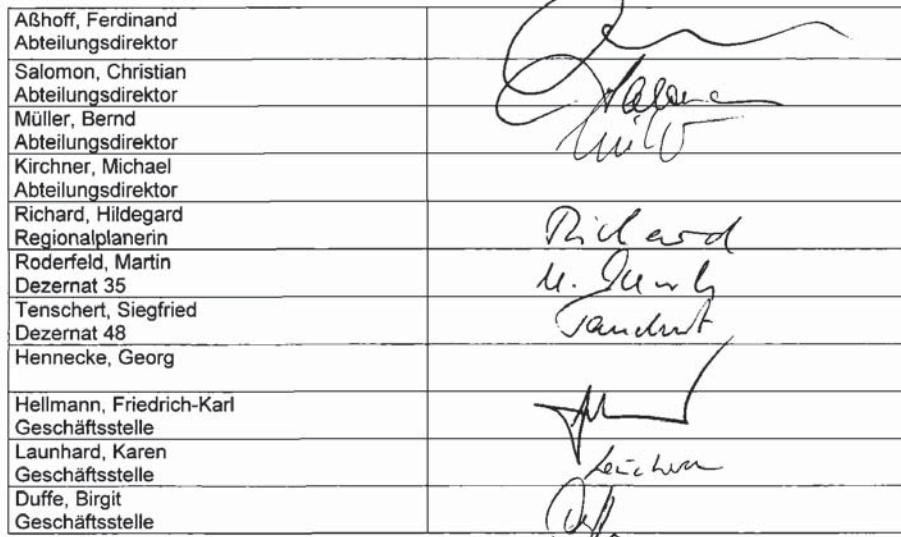 Aßhoff, Ferdinand
Abteilungsdirektor
Salomon, Christian
Abteilungsdirektor
Müller, Bernd
Abteilungsdirektor
Kirchner, Michael
Abteilungsdirektor
Richard, Hildegard
Regionalplanerin
Richard
Roderfeld, Martin
Dezernat 35
Tenschert, Siegfried
Dezernat 48
Hennecke, Georg
Hellmann, Friedrich-Karl
Geschäftsstelle
Launhard, Karen
Geschäftsstelle
Duffe, Birgit
Geschäftsstelle